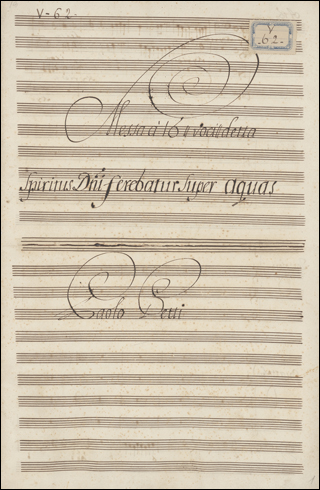 V-62-
V
62.
Messa à 16 voci detta
Spiritus Dñi ferebatur super aquas
Paolo Petti